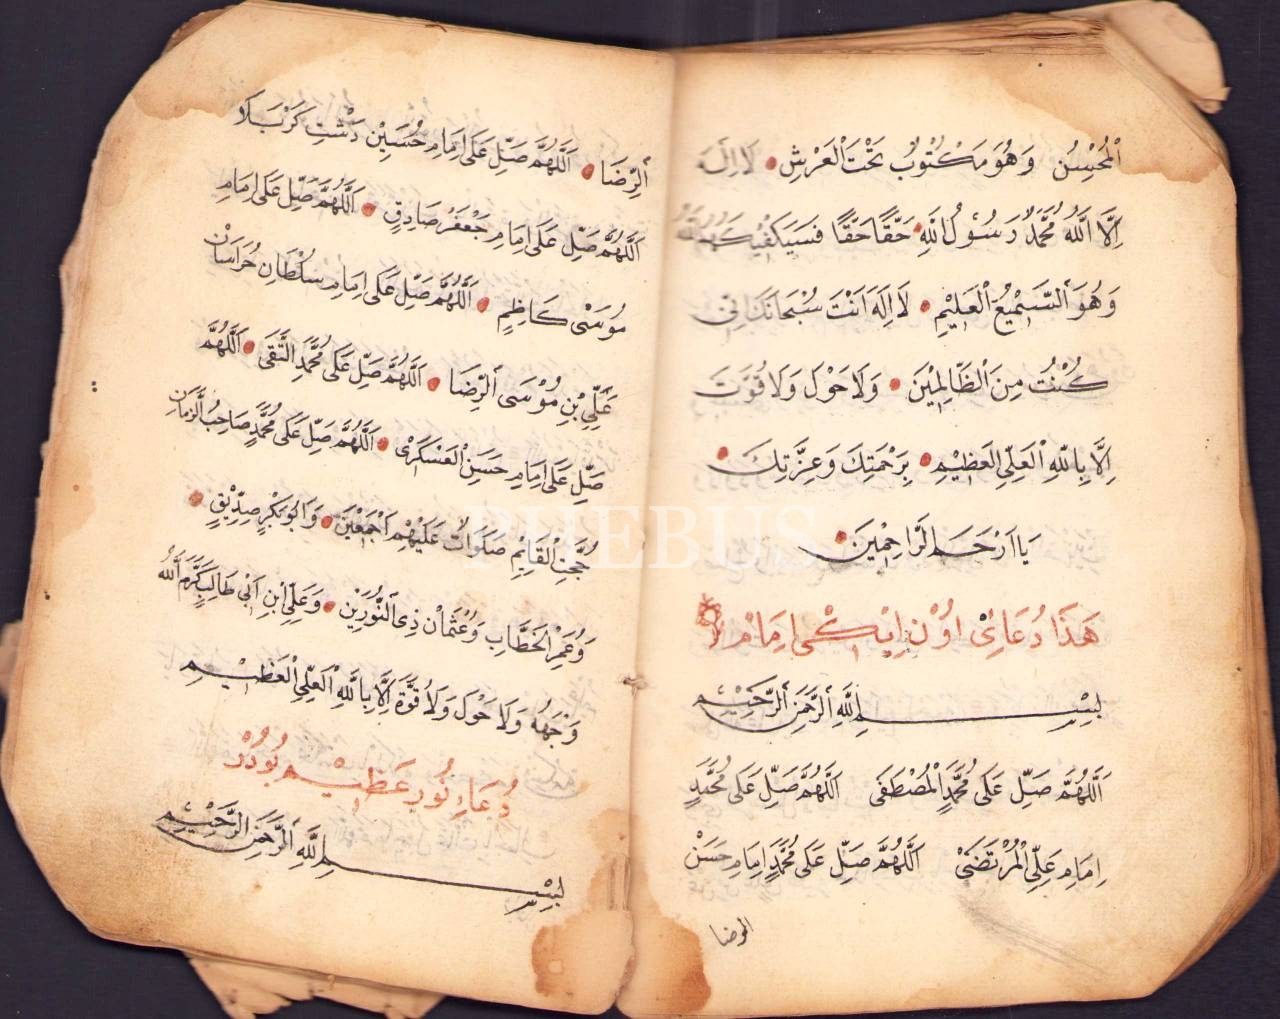 اَلْمُحْسِنُ وَهُوَ مَكْتُوبٌ تَحْتَ الْعَرْشِ لَا اِلٰهَ
اِلَّا اللّٰهُ مُحَمَّدٌ رَسُولُ اللّٰهِ حَقًّا حَقًّا فَسَيَكْفِيكَهُمُ اللّٰهُ
وَهُوَ السَّمِيْعُ الْعَلِيْمِ لَا اِلٰهَ اَنْتَ سُبْحَانَكَ اِنّٖى
كُنْتُ مِنَ الظَّالِمِيْنَ وَلَا حَوْلَ وَلَا قُوَّتَ
اِلَّا بِاللّٰهِ الْعَلِيِّ الْعَظِيْمِ بِرَحْمَتِكَ وَعِزَّتِكَ
يَا اَرْحَمَ الرَّاحِمِيْنَ
هَذَا دُعَائِ اوُنْ اِيْكِى اِمَامْ
بِسْمِ اللّٰهِ الرَّحْمَنِ الرَّحِيْمِ
اَللّٰهُمَّ صَلِّ عَلَى مُحَمَّدٍ الْمُصْطَفَى اَللّٰهُمَّ صَلِّ عَلَى مُحَمَّدٍ
اِمَامِ عَلِيِّ الْمُرْتَضَى اَللّٰهُمَّ صَلِّ عَلَى مُحَمَّدٍ اِمَامِ حَسَنْ
الرضا
اَلرِّضَا اَللّٰهُمَّ صَلِّ عَلَى اِمَامِ حُسَيِنْ دَشْتِ كَرْبَلَا
اَللّٰهُمَّ صَلِّ عَلَى اِمَامِ جَعْفَرْ صَادِقٍ اَللّٰهُمَّ صَلِّ عَلَى اِمَامِ
مُوسَى كَاظِمٍ اَللّٰهُمَّ صَلِّ عَلَى اِمَامِ سُلْطَانِ خُرَاسَانْ
عَلِّيِ بْنِ مُوْسَى الرِّضَا اَللّٰهُمَّ صَلِّ عَلَى مُحَمَّدِ التَّقَى اَللّٰهُمَّ
صَلِّ عَلَى اِمَامِ حَسَنِ الْعَسْكَرَى اَللّٰهُمَّ صَلِّ عَلَى مُحَمَّدٍ صَاحِبُ الزَّمَانِ
حُجَّتِ الْقَايِمِ صَلَوَاتُ عَلَيْهِمْ اَجْمَعِيْنَ وَابُوبَكْرٍ صِدِّيْقٍ
وَعُمَرِ الْخَطَّابِ وَعُثْمَانْ ذِى النُّورَيْنِ وَعَلِيِّ ابْنِ اَبِى طَالِبٍ كَرَّمَ اللّٰهُ
وَجَهَهُ وَلَا حَوْلَ وَلَا قُوَّةَ اِلَّا بِاللّٰهِ الْعَلِيِّ الْعَظِيْمِ
دُعَاءِ نُورِ عَظِيْمِ بُودُرْ
بِسْمِ اللّٰهِ الرَّحْمَنِ الرَّحِيْمِ
PHEBUS